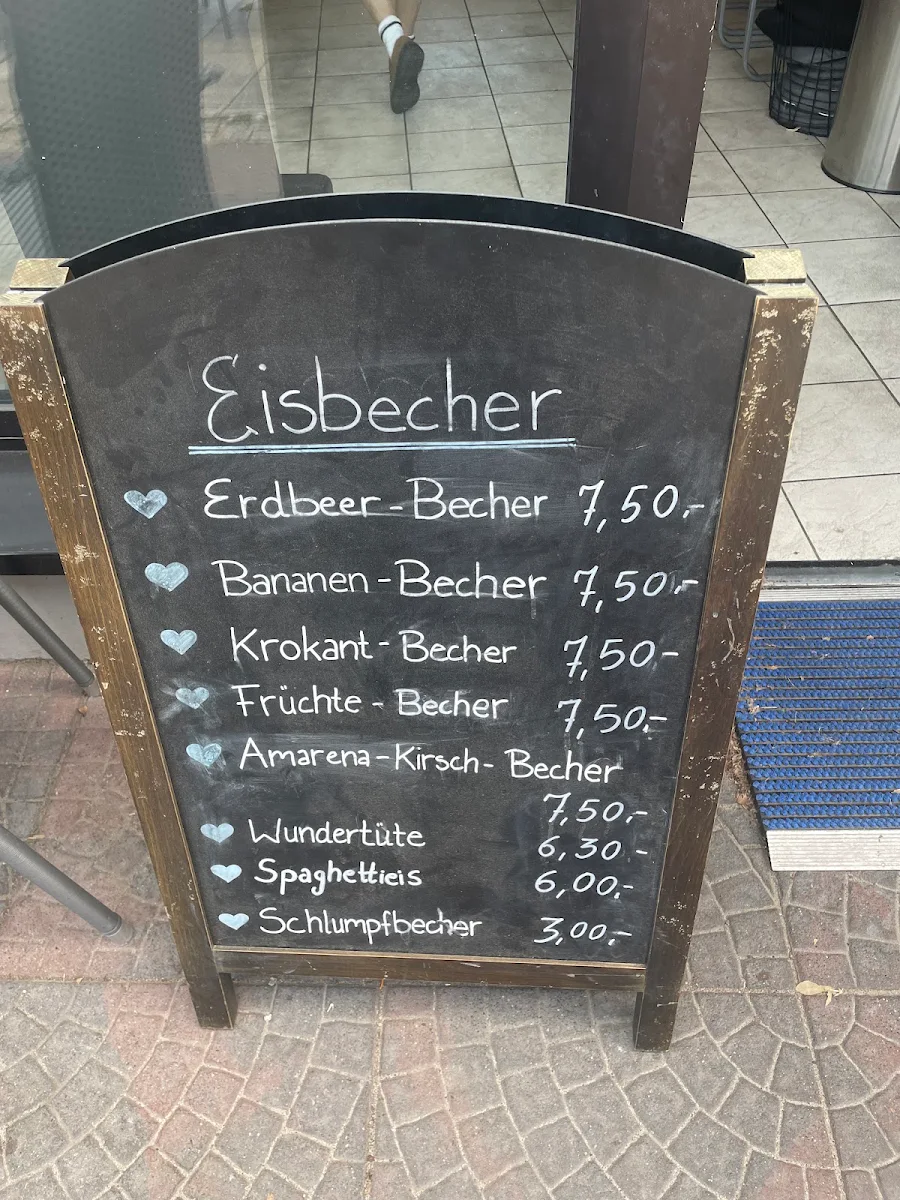 Eisbecher
Erdbeer-Becher 7,50.-
Bananen-Becher 7,50.-
Krokant-Becher 7,50-
Früchte-Becher 7,50.-
Amarena-Kirsch-Becher
7,50.-
Wundertüte 6,30.-
Spaghettieis 6,00.-
Schlumpfbecher 3,00.-